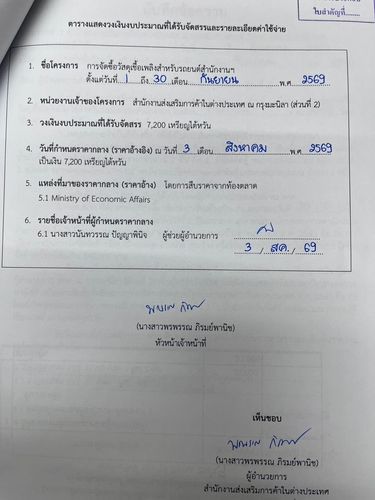 ใบสำคัญที่........
ตารางแสดงวงเงินงบประมาณที่ได้รับจัดสรรและรายละเอียดค่าใช้จ่าย
1. ชื่อโครงการ การจัดซื้อวัสดุเชื้อเพลิงสำหรับรถยนต์สำนักงานฯ
ตั้งแต่วันที่ 1 ถึง 30 เดือน กันยายน พ.ศ. 2569
2. หน่วยงานเจ้าของโครงการ สำนักงานส่งเสริมการค้าในต่างประเทศ ณ กรุงมะนิลา (ส่วนที่ 2)
3. วงเงินงบประมาณที่ได้รับจัดสรร 7,200 เหรียญไต้หวัน
4. วันที่กำหนดราคากลาง (ราคาอ้างอิง) ณ วันที่ 3 เดือน สิงหาคม พ.ศ. 2569
เป็นเงิน 7,200 เหรียญไต้หวัน
5. แหล่งที่มาของราคากลาง (ราคาอ้าง) โดยการสืบราคาจากท้องตลาด
5.1 Ministry of Economic Affairs
6. รายชื่อเจ้าหน้าที่ผู้กำหนดราคากลาง
6.1 นางสาวนันทวรรณ ปัญญาพินิจ ผู้ช่วยผู้อำนวยการ
3 / สค. / 69
(นางสาวพรพรรณ ภิรมย์พานิช)
หัวหน้าเจ้าหน้าที่
เห็นชอบ
(นางสาวพรพรรณ ภิรมย์พานิช)
ผู้อำนวยการ
สำนักงานส่งเสริมการค้าในต่างประเทศ